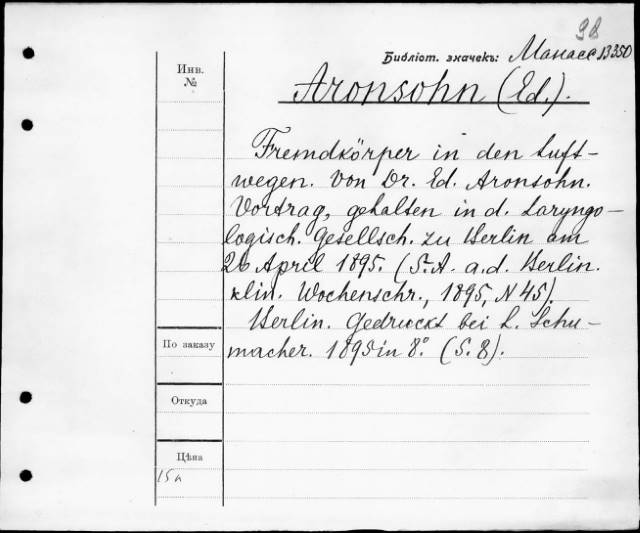 98
Библiот. значекъ: Манасс 13350
Инв.
№
Aronsohn (Ed.).
Fremdkörper in den Luft-
wegen. Von Dr. Ed. Aronsohn.
Vortrag, gehalten in d. Laryngo-
logisch. Gesellsch. zu Berlin am
26 April 1895. (S.A. a.d. Berlin.
klin. Wochenschr., 1895, N 45).
Berlin. Gedruckt bei L. Schu-
macher. 1895 in 8°. (S. 8).
По заказу
Откуда
Цѣна
15к